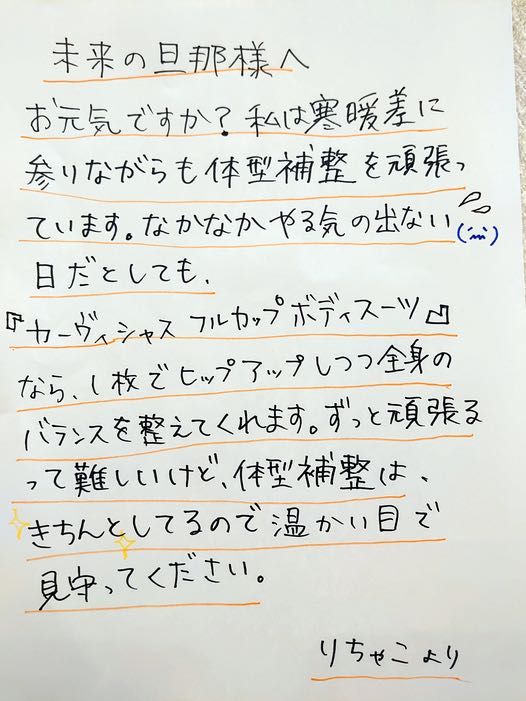 未来の旦那様へ
お元気ですか?私は寒暖差に
参りながらも体型補整を頑張っ
ています。なかなかやる気の出ない
日だとしても、
『カーヴィシャス フルカップボディスーツ』
なら、1枚でヒップアップしつつ全身の
バランスを整えてくれます。ずっと頑張る
って難しいけど、体型補整は、
きちんとしてるので温かい目で
見守ってください。
りちゃこより